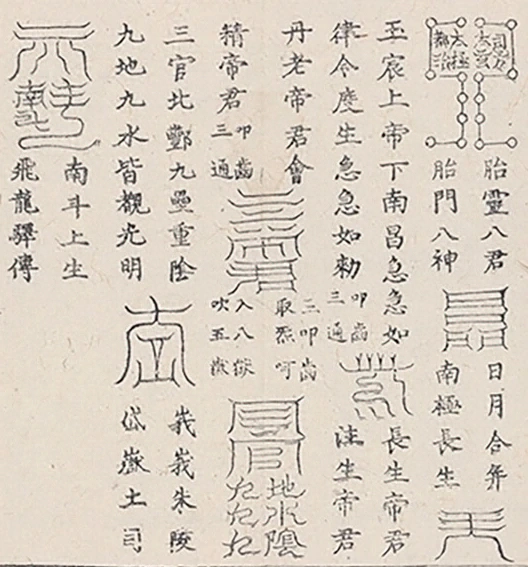 胎靈八君
胎門八神
日月合并
南極長生
玉宸上帝下南昌急急如
律令度生急急如勅
叩齒
三通
長生帝君
注生帝君
丹老帝君會
精帝君
叩齒
三通
三叩齒
取炁呵
入八
吹五嶽
地水陰
九九九
三官北酆九壘重陰
九地九水皆觀光明
峩峩朱陵
岱嶽土司
南斗上生
飛龍驛傳